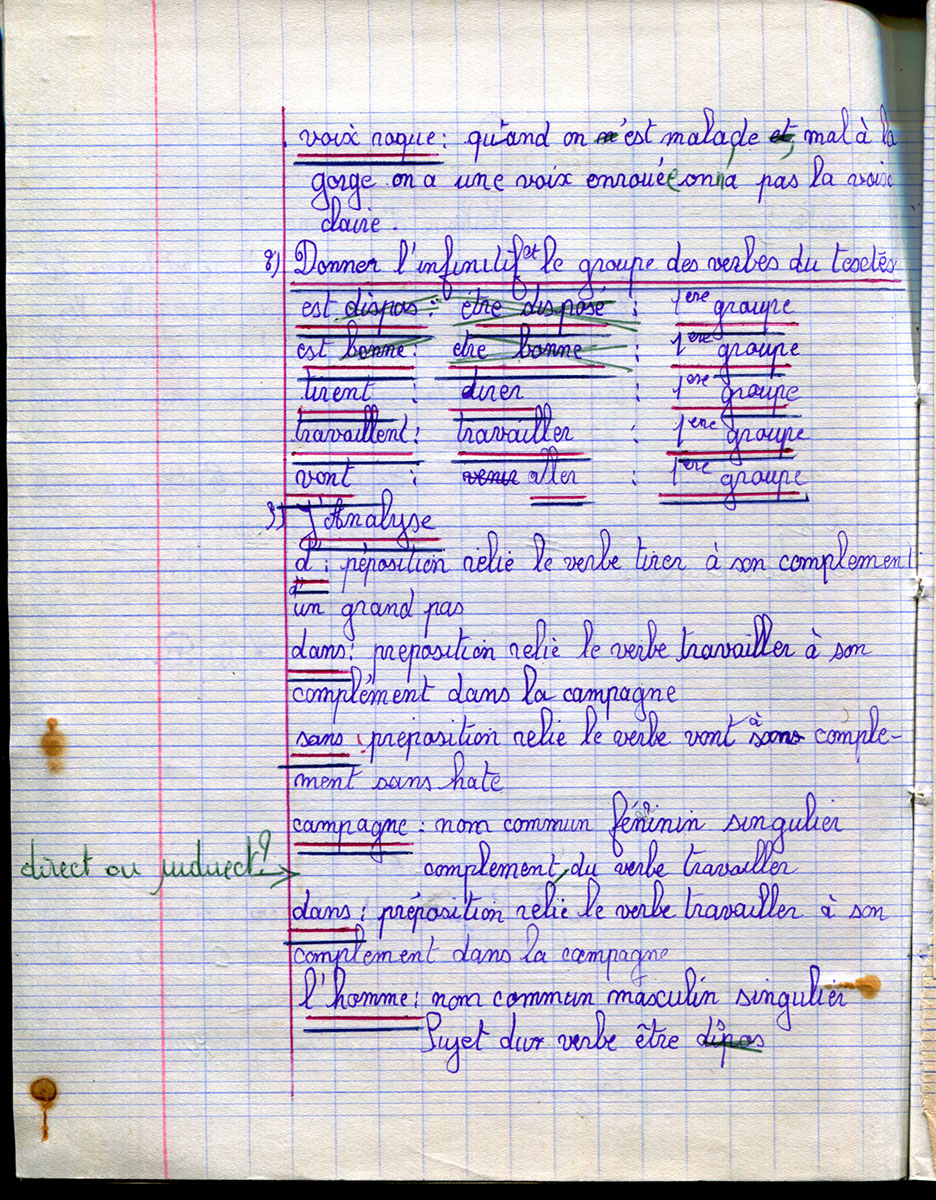 voix raque : qu'and on n'est malade, et mal à la
gorge on a une voix enrouée on n'a pas la voix
claire.
8) Donner l'infinitif et le groupe des verbes du texte
est dispos : être disposé : 1ere groupe
est bonne : etre bonne : 1ere groupe
tirent : tirer : 1ere groupe
travaillent : travailler : 1ere groupe
vont : venir aller : 1ere groupe
9) J'Analyse
d' : péposition relié le verbe tirer à son complement
d'un grand pas
dans : preposition relié le verbe travailler à son
complément dans la campagne
sans : préposition relié le verbe vont à sans comple-
ment sans hate
campagne : nom commun féninin singulier
direct ou indirect ? complement, du verbe travailler
dans : préposition relié le verbe travailler à son
complement dans la campagne
l'homme : nom commun masculin singulier
Sujet du verbe être dipos